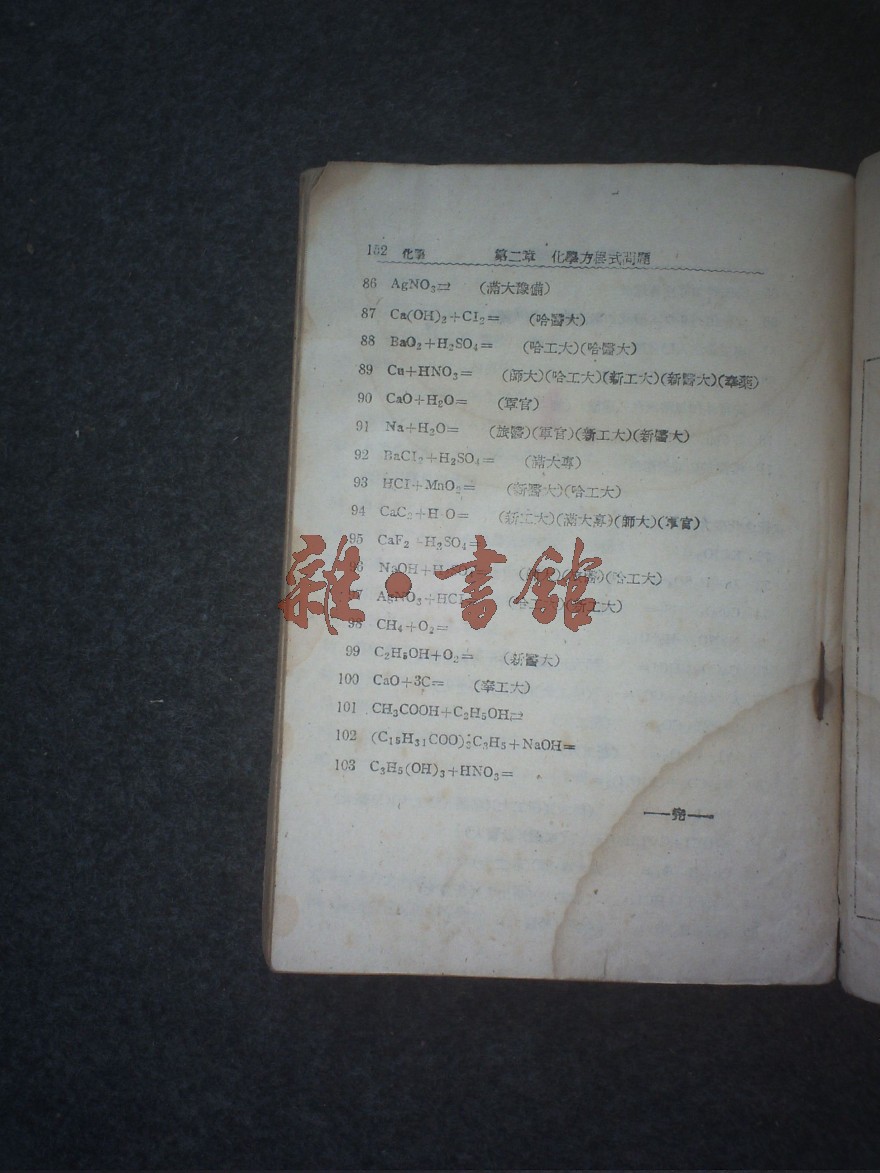 152 化學 第二章 化學方程式問題
86 AgNO₃⇄ (滿大豫備)
87 Ca(OH)₂+Cl₂= (哈醫大)
88 BaO₂+H₂SO₄= (哈工大)(哈醫大)
89 Cu+HNO₃= (師大)(哈工大)(新工大)(新醫大)(奉藥)
90 CaO+H₂O= (軍官)
91 Na+H₂O= (旅醫)(軍官)(新工大)(新醫大)
92 BaCl₂+H₂SO₄= (滿大專)
93 HCl+MnO₂= (新醫大)(哈工大)
94 CaC₂+H O= (新工大)(滿大專)(師大)(軍官)
95 CaF₂+H₂SO₄=
96 NaOH+H SO = (哈工大)
97 AgNO₃+HCl 工大)
98 CH₄+O₂=
99 C₂H₅OH+O₂= (新醫大)
100 CaO+3C= (奉工大)
101 CH₃COOH+C₂H₅OH⇄
102 (C₁₅H₃₁COO)₃C₃H₅+NaOH=
103 C₃H₅(OH)₃+HNO₃=
——完——
雜·書館